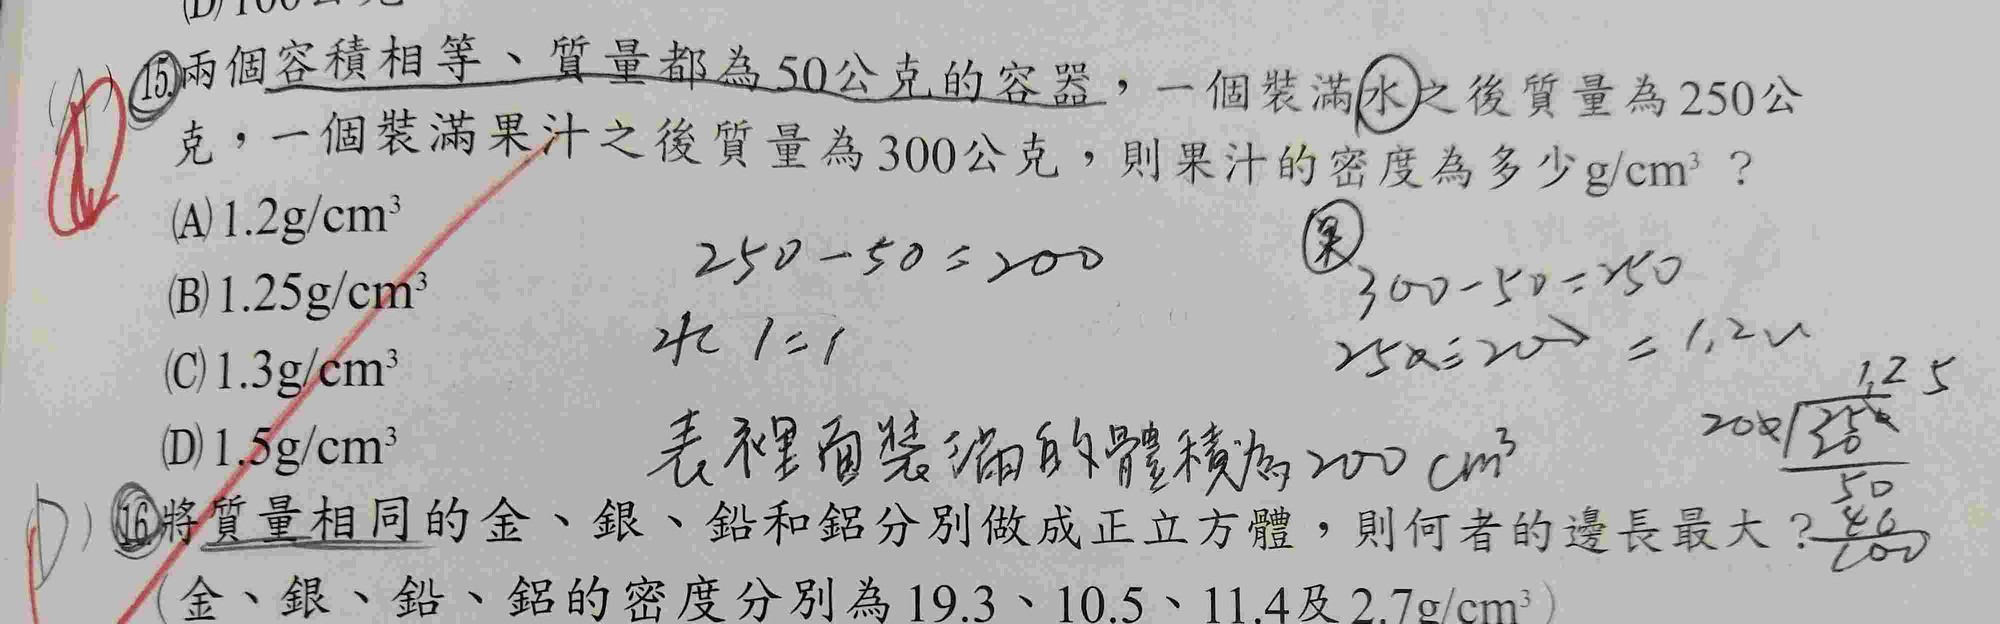 (D)100公克
(A) 15.兩個容積相等、質量都為50公克的容器，一個裝滿水之後質量為250公
克，一個裝滿果汁之後質量為300公克，則果汁的密度為多少g/cm³？
(A)1.2g/cm³
(B)1.25g/cm³
(C)1.3g/cm³
(D)1.5g/cm³
250-50=200
水 1=1
表裡面裝滿的體積為200cm³
果
300-50=250
=1.2
1.25
50
D) 16.將質量相同的金、銀、鉛和鋁分別做成正立方體，則何者的邊長最大？
(金、銀、鉛、鋁的密度分別為19.3、10.5、11.4及2.7g/cm³)